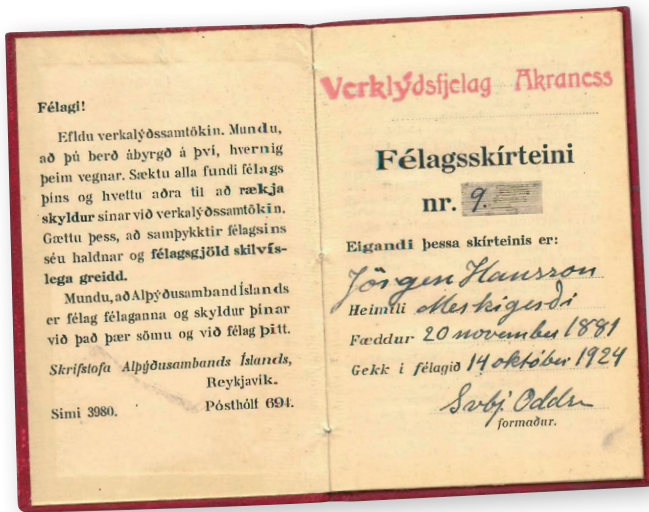 Félagi!
Efldu verkalýðssamtökin. Mundu,
að þú berð ábyrgð á því, hvernig
þeim vegnar. Sæktu alla fundi félags
þins og hvettu aðra til að rækja
skyldur sinar við verkalýðssamtökin.
Gættu þess, að samþykktir félagsins
séu haldnar og félagsgjöld skilvís-
lega greidd.
Mundu, að Alþýðusamband Íslands
er félag félaganna og skyldur þinar
við það þær sömu og við félag þitt.
Skrifstofa Alþýðusambands Íslands,
Reykjavik.
Simi 3980. Pósthólf 694.
Verklýdsfjelag Akraness
Félagsskírteini
nr. 9.
Eigandi þessa skírteinis er:
Jörgen Hansson
Heimili Merkigerði
Fæddur 20 november 1881
Gekk i félagið 14 október 1924
Svbj. Oddss
formaður.